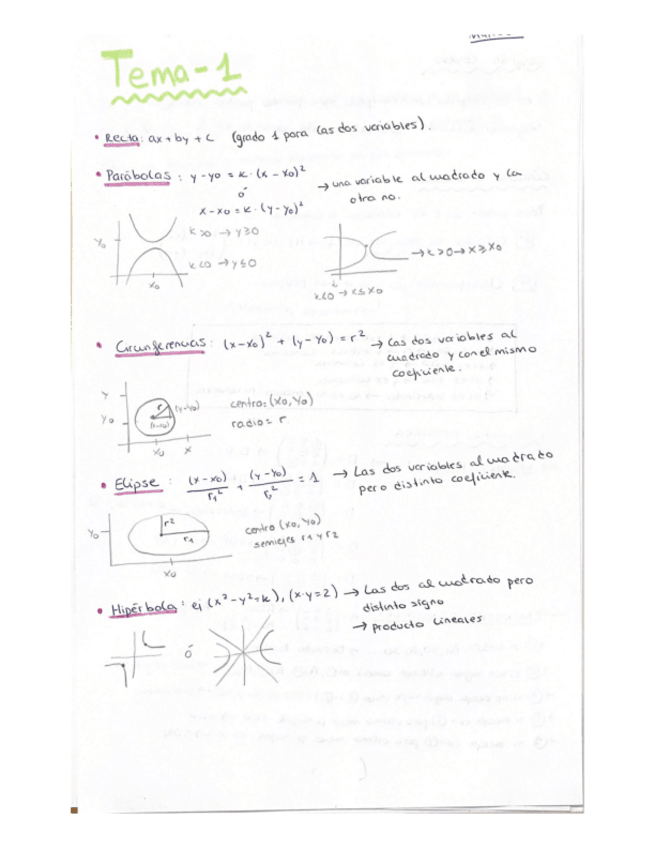 Tema-1
• Recta: ax + by + c (grado 1 para las dos variables).
• Parábolas: y-y0 = k·(x-x0)²
ó
x-x0 = k·(y-y0)²
→ una variable al cuadrado y la
otra no.
y0
x0
k>0 → y≥0
k<0 → y≤0
→ k>0 → x≥x0
k<0 → x≤x0
• Circunferencias: (x-x0)² + (y-y0) = r² → Las dos variables al
cuadrado y con el mismo
coeficiente.
y
y0
r
(y-y0)
(x-x0)
x0 x
centro: (x0, y0)
radio = r
• Elipse: (x-x0)/r1² + (y-y0)/r2² = 1 → Las dos variables al cuadrado
pero distinto coeficiente.
y0
r2
r1
x0
centro (x0, y0)
semiejes r1 y r2
• Hipérbola: ej (x²-y²+k), (x·y=2) → Las dos al cuadrado pero
distinto signo
→ producto lineales
ó